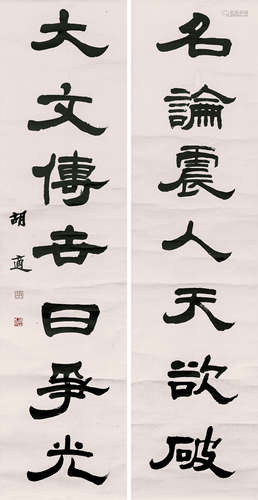 名論震人天欲破
大文傳世日爭光
胡適